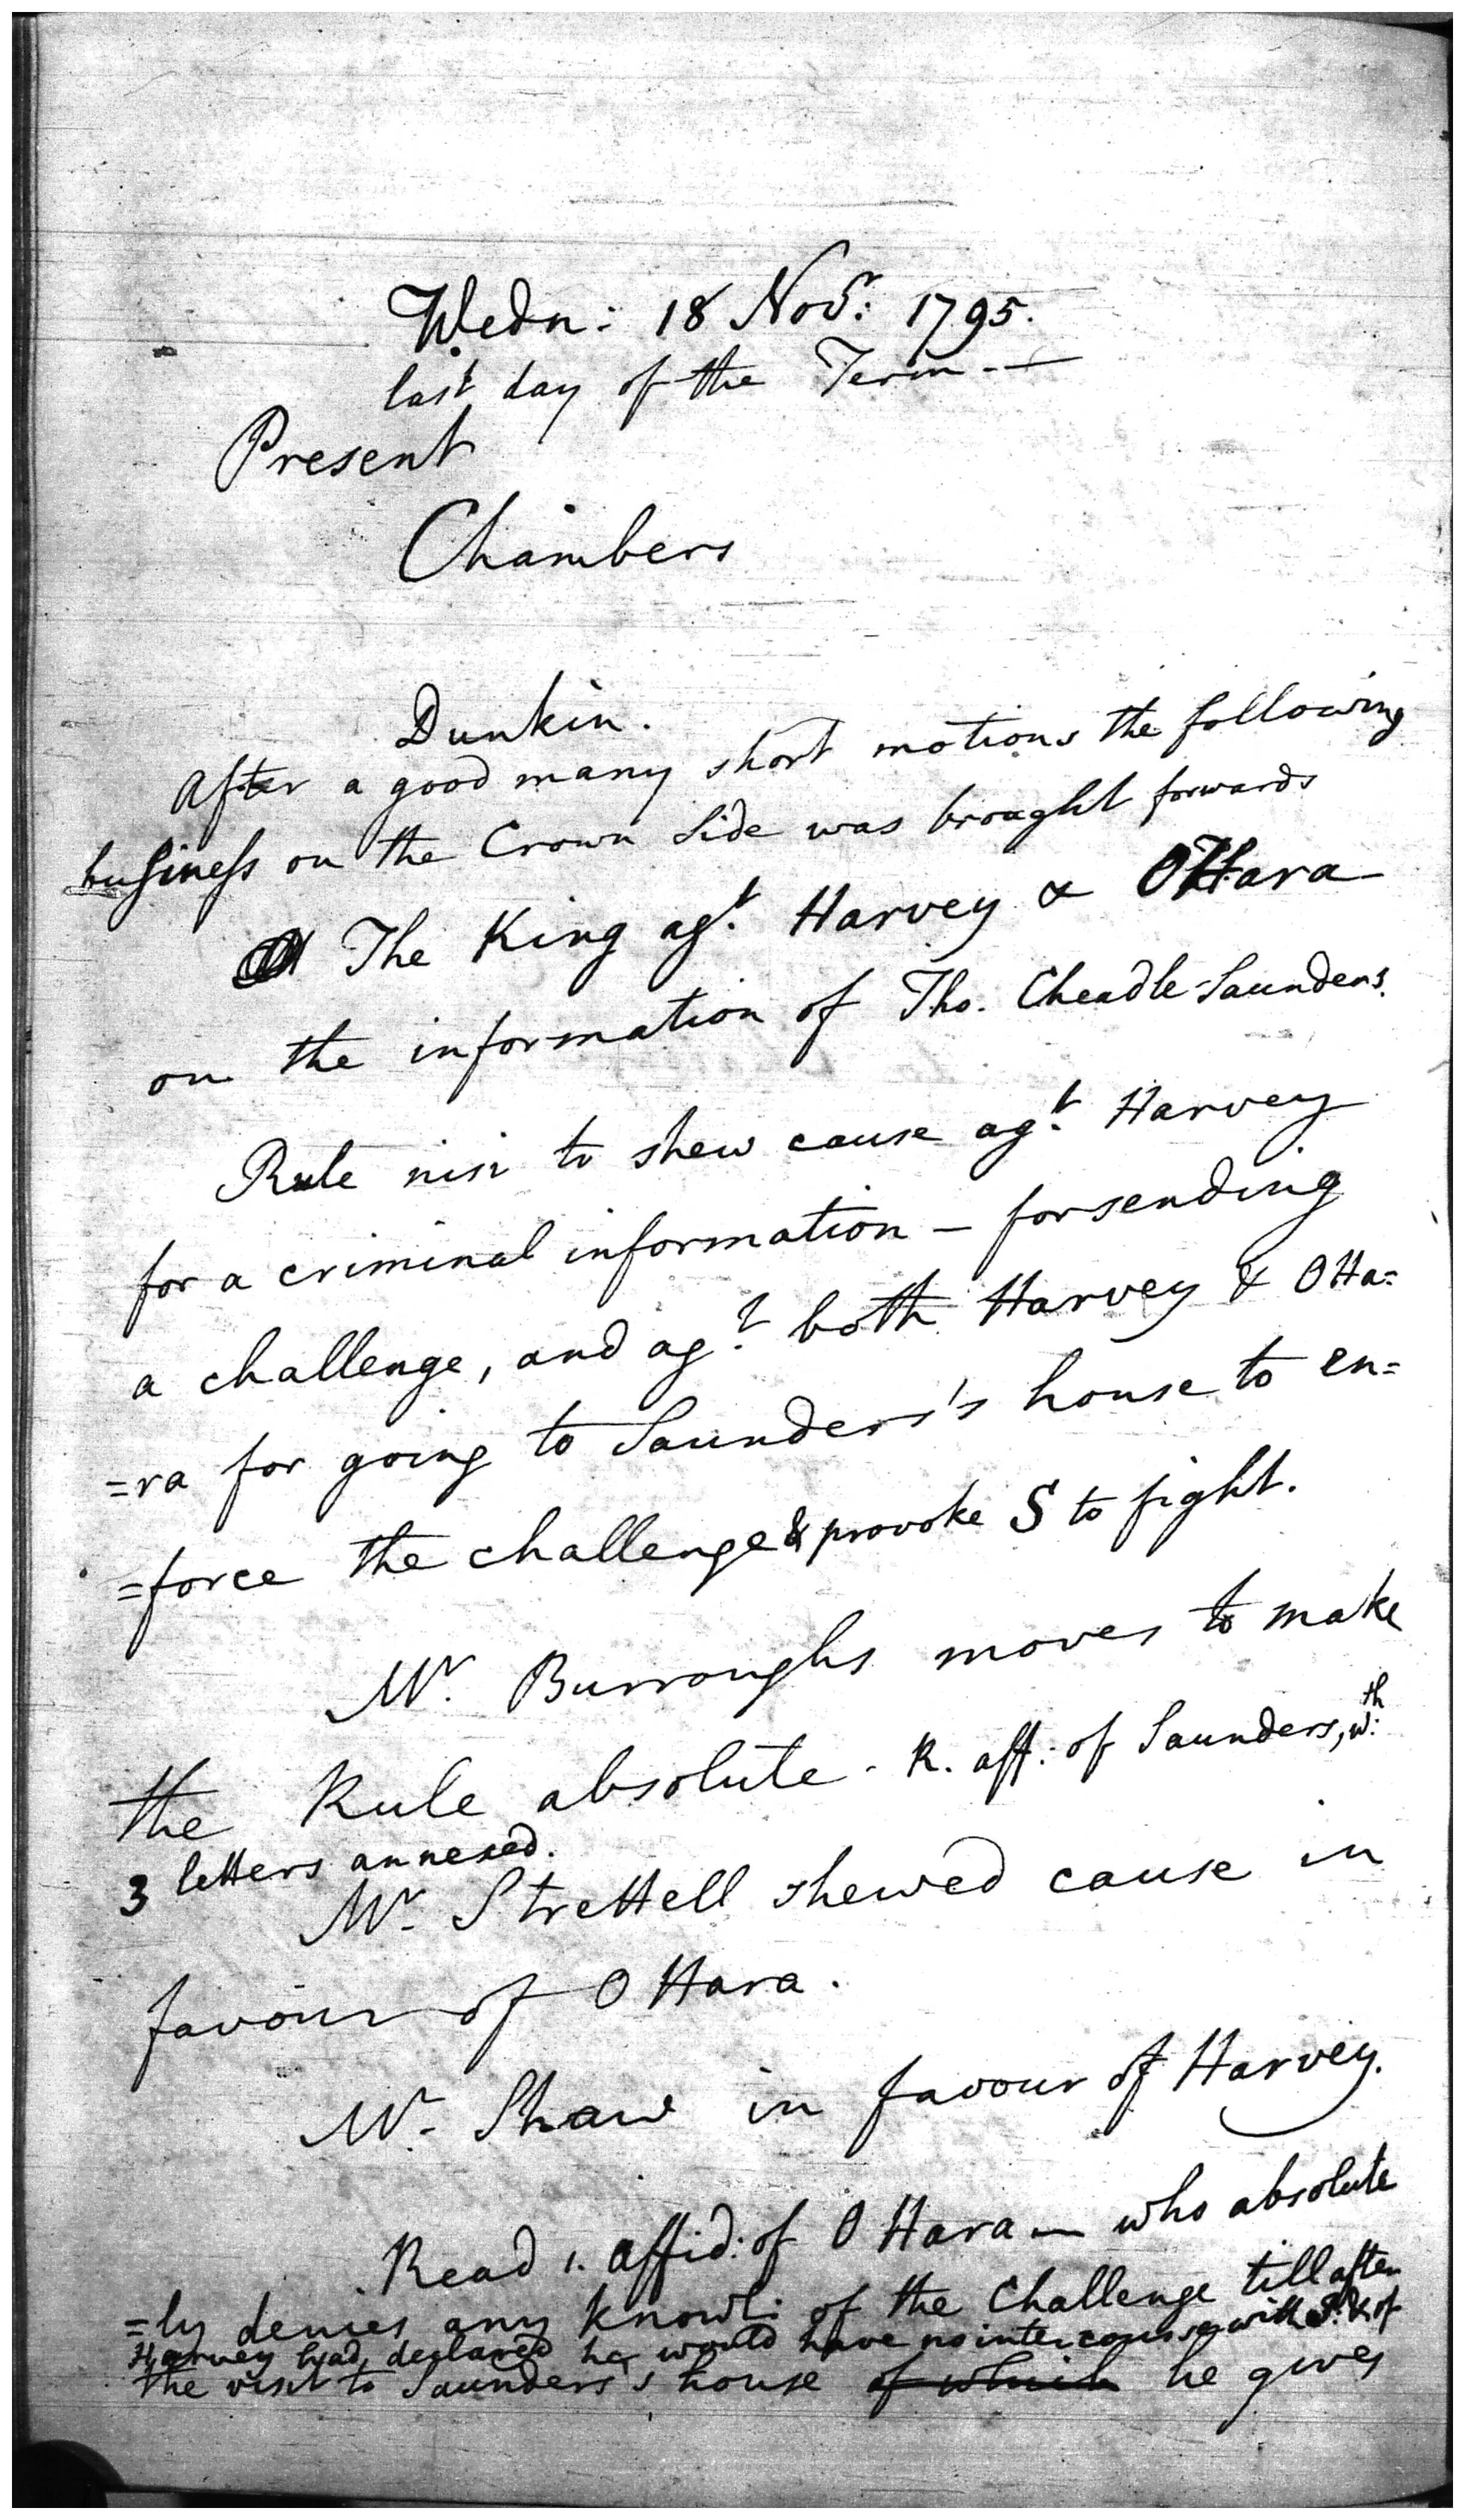 Wedn: 18 Novr: 1795.
last day of the Term —
Present
Chambers
Dunkin.
After a good many short motions the following
business on the Crown Side was brought forwards
The King agt. Harvey & OHara
on the information of Tho. Cheadle Saunders.
Rule nisi to shew cause agt. Harvey
for a criminal information – for sending
a challenge, and agt. both Harvey & OHa=
=ra for going to Saunders's house to en=
=force the challenge & provoke S to fight.
Mr. Burroughs moves to make
the Rule absolute. R. aff: of Saunders, wth:
3 letters annexed.
Mr. Strettell shewed cause in
favour of OHara.
Mr. Shaw in favour of Harvey.
Read 1. Affid: of OHara — who absolute
=ly denies any knowl: of the Challenge till after
Harvey had declared he would have no intercourse with S. & of
the visit to Saunders's house of which he gives